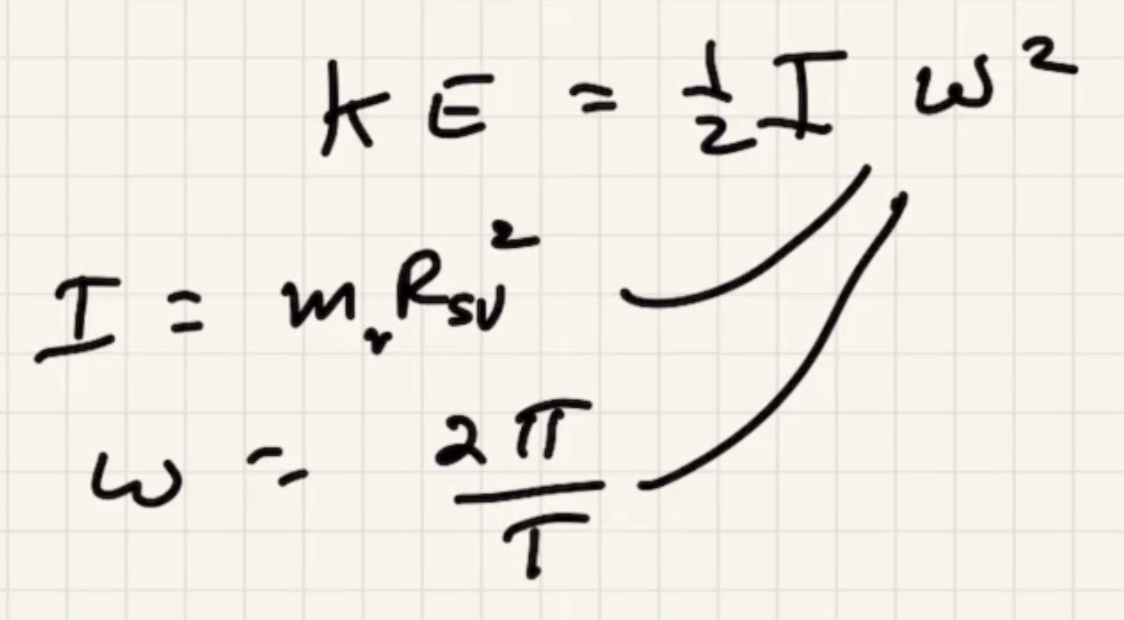 KE = 1/2 I ω²
I = mᵥ R_SV²
ω = 2π/T